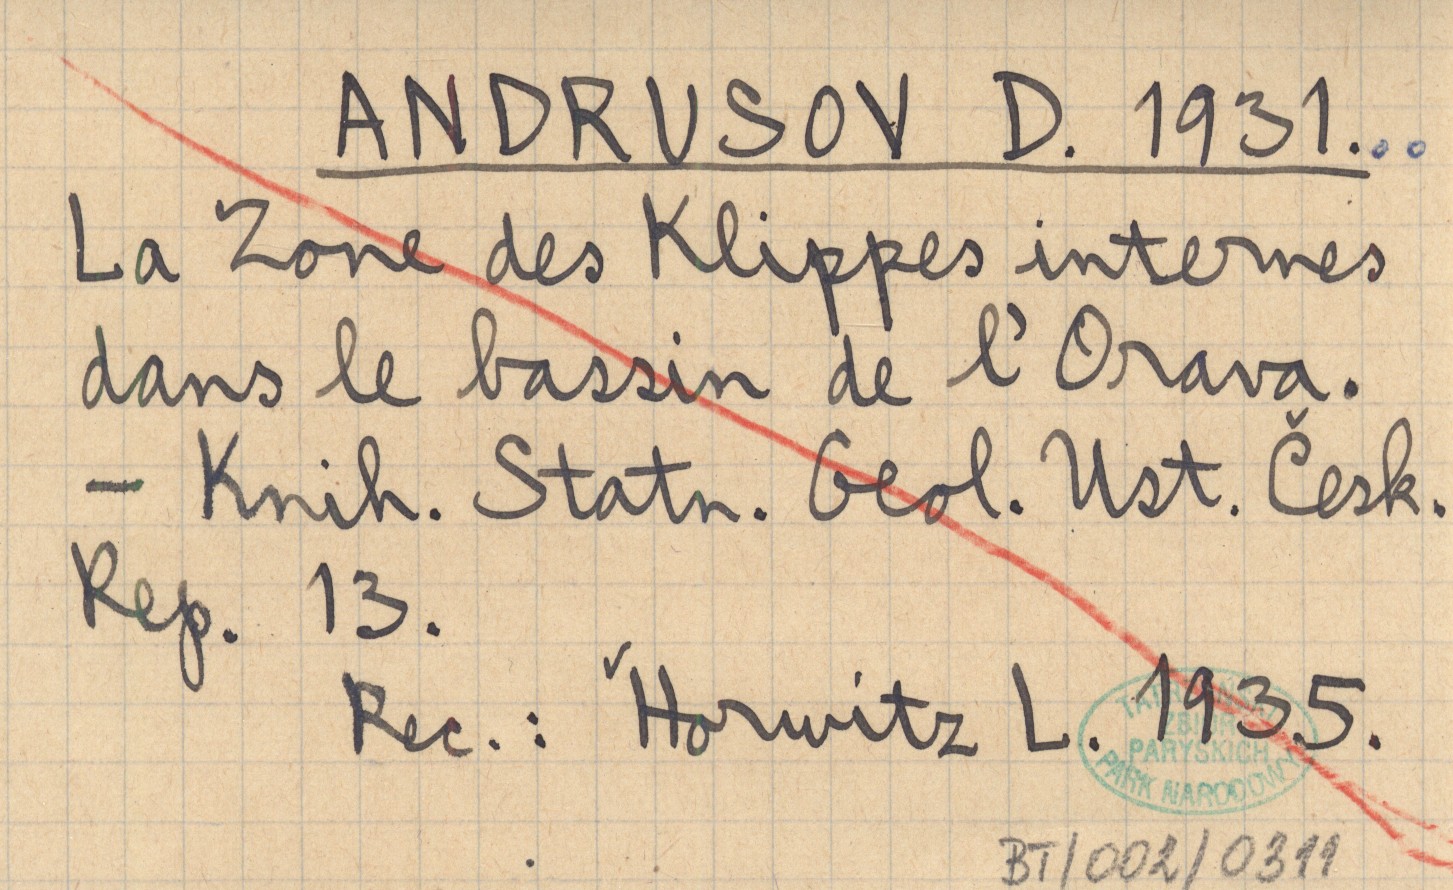 ANDRUSOV D. 1931...
La Zone des Klippes internes
dans le bassin de l'Orava.
- Knih. Statn. Geol. Ust. Česk.
Rep. 13.
Rec.: ✓Horwitz L. 1935.
ZBIORY
PARYSKICH
PARK NARODOWY
BT/002/0311